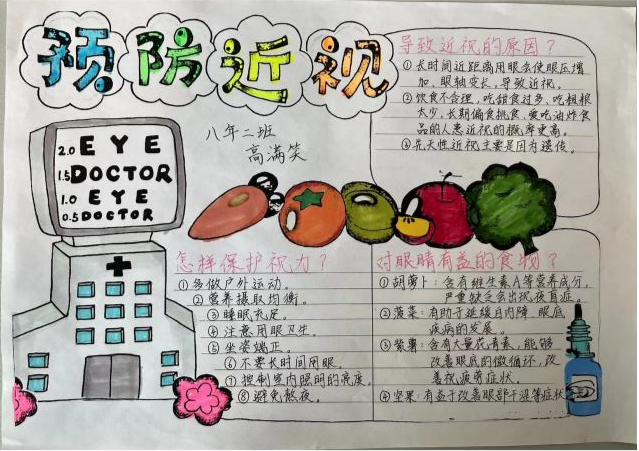 预防近视
八年二班
高满笑
2.0 EYE
1.5 DOCTOR
1.0 EYE
0.5 DOCTOR
导致近视的原因？
①长时间近距离用眼会使眼压增
加，眼轴变长，导致近视。
②饮食不合理，吃甜食过多，吃粗粮
太少，长期偏食挑食，爱吃油炸食
品的人患近视的概率更高。
③先天性近视主要是因为遗传。
怎样保护视力？
①多做户外运动。
②营养摄取均衡。
③睡眠充足。
④注意用眼卫生。
⑤坐姿端正。
⑥不要长时间用眼。
⑦控制室内照明的亮度。
⑧避免熬夜。
对眼睛有益的食物？
①胡萝卜：含有维生素A等营养成分，
严重缺乏会出现夜盲症。
②菠菜：有助于延缓白内障、眼底
疾病的发展。
③紫薯：含有大量花青素，能够
改善眼底的微循环，改
善视疲劳症状。
④坚果：有益于改善眼部干涩等症状